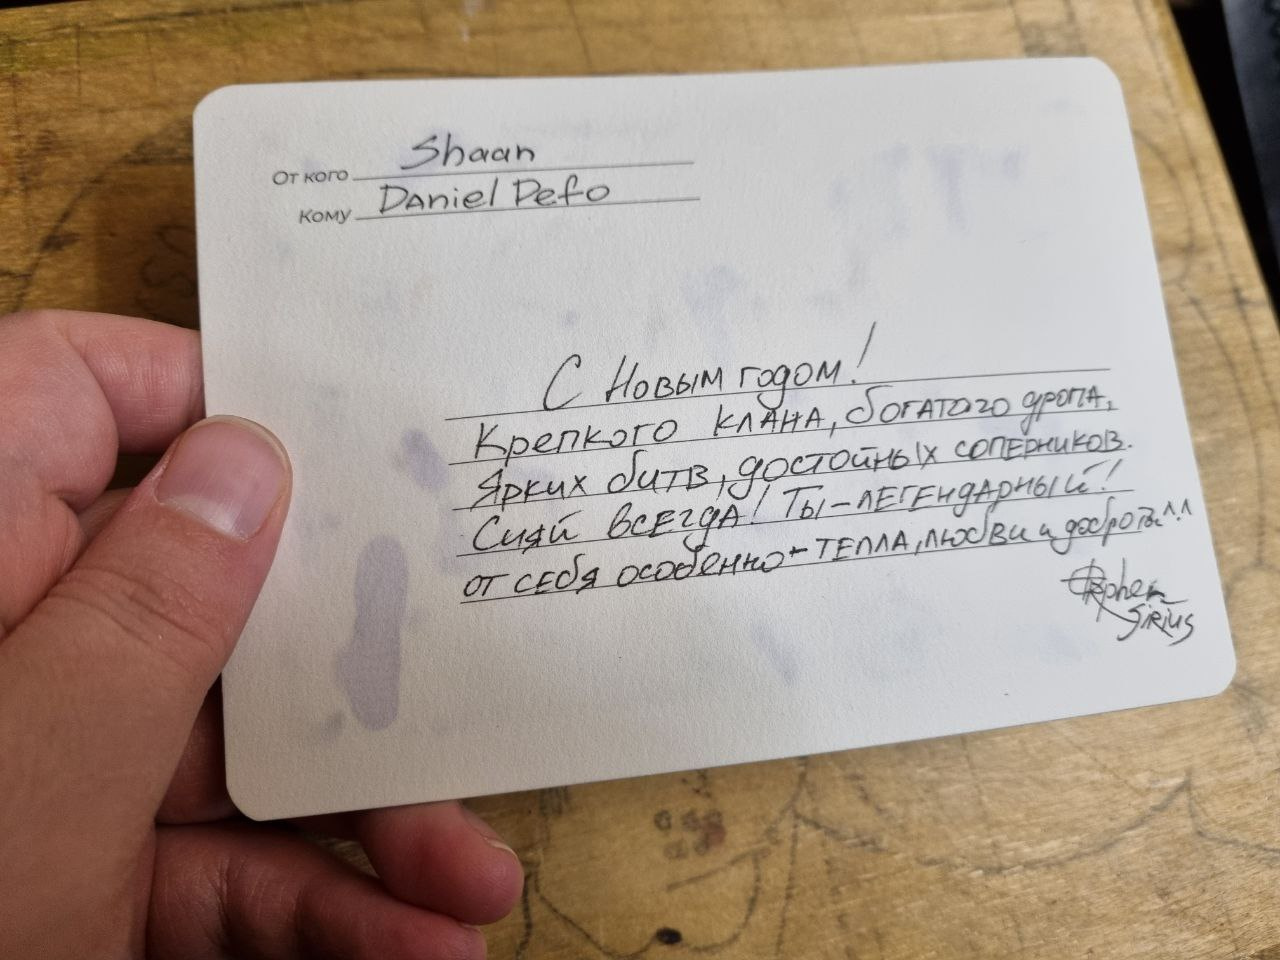 От кого Shaan
Кому Daniel Defo
С Новым годом!
Крепкого клана, богатого дропа,
Ярких битв, достойных соперников.
Сияй всегда! Ты - легендарный!
от себя особенно - тепла, любви и доброты ^.^
Sirius